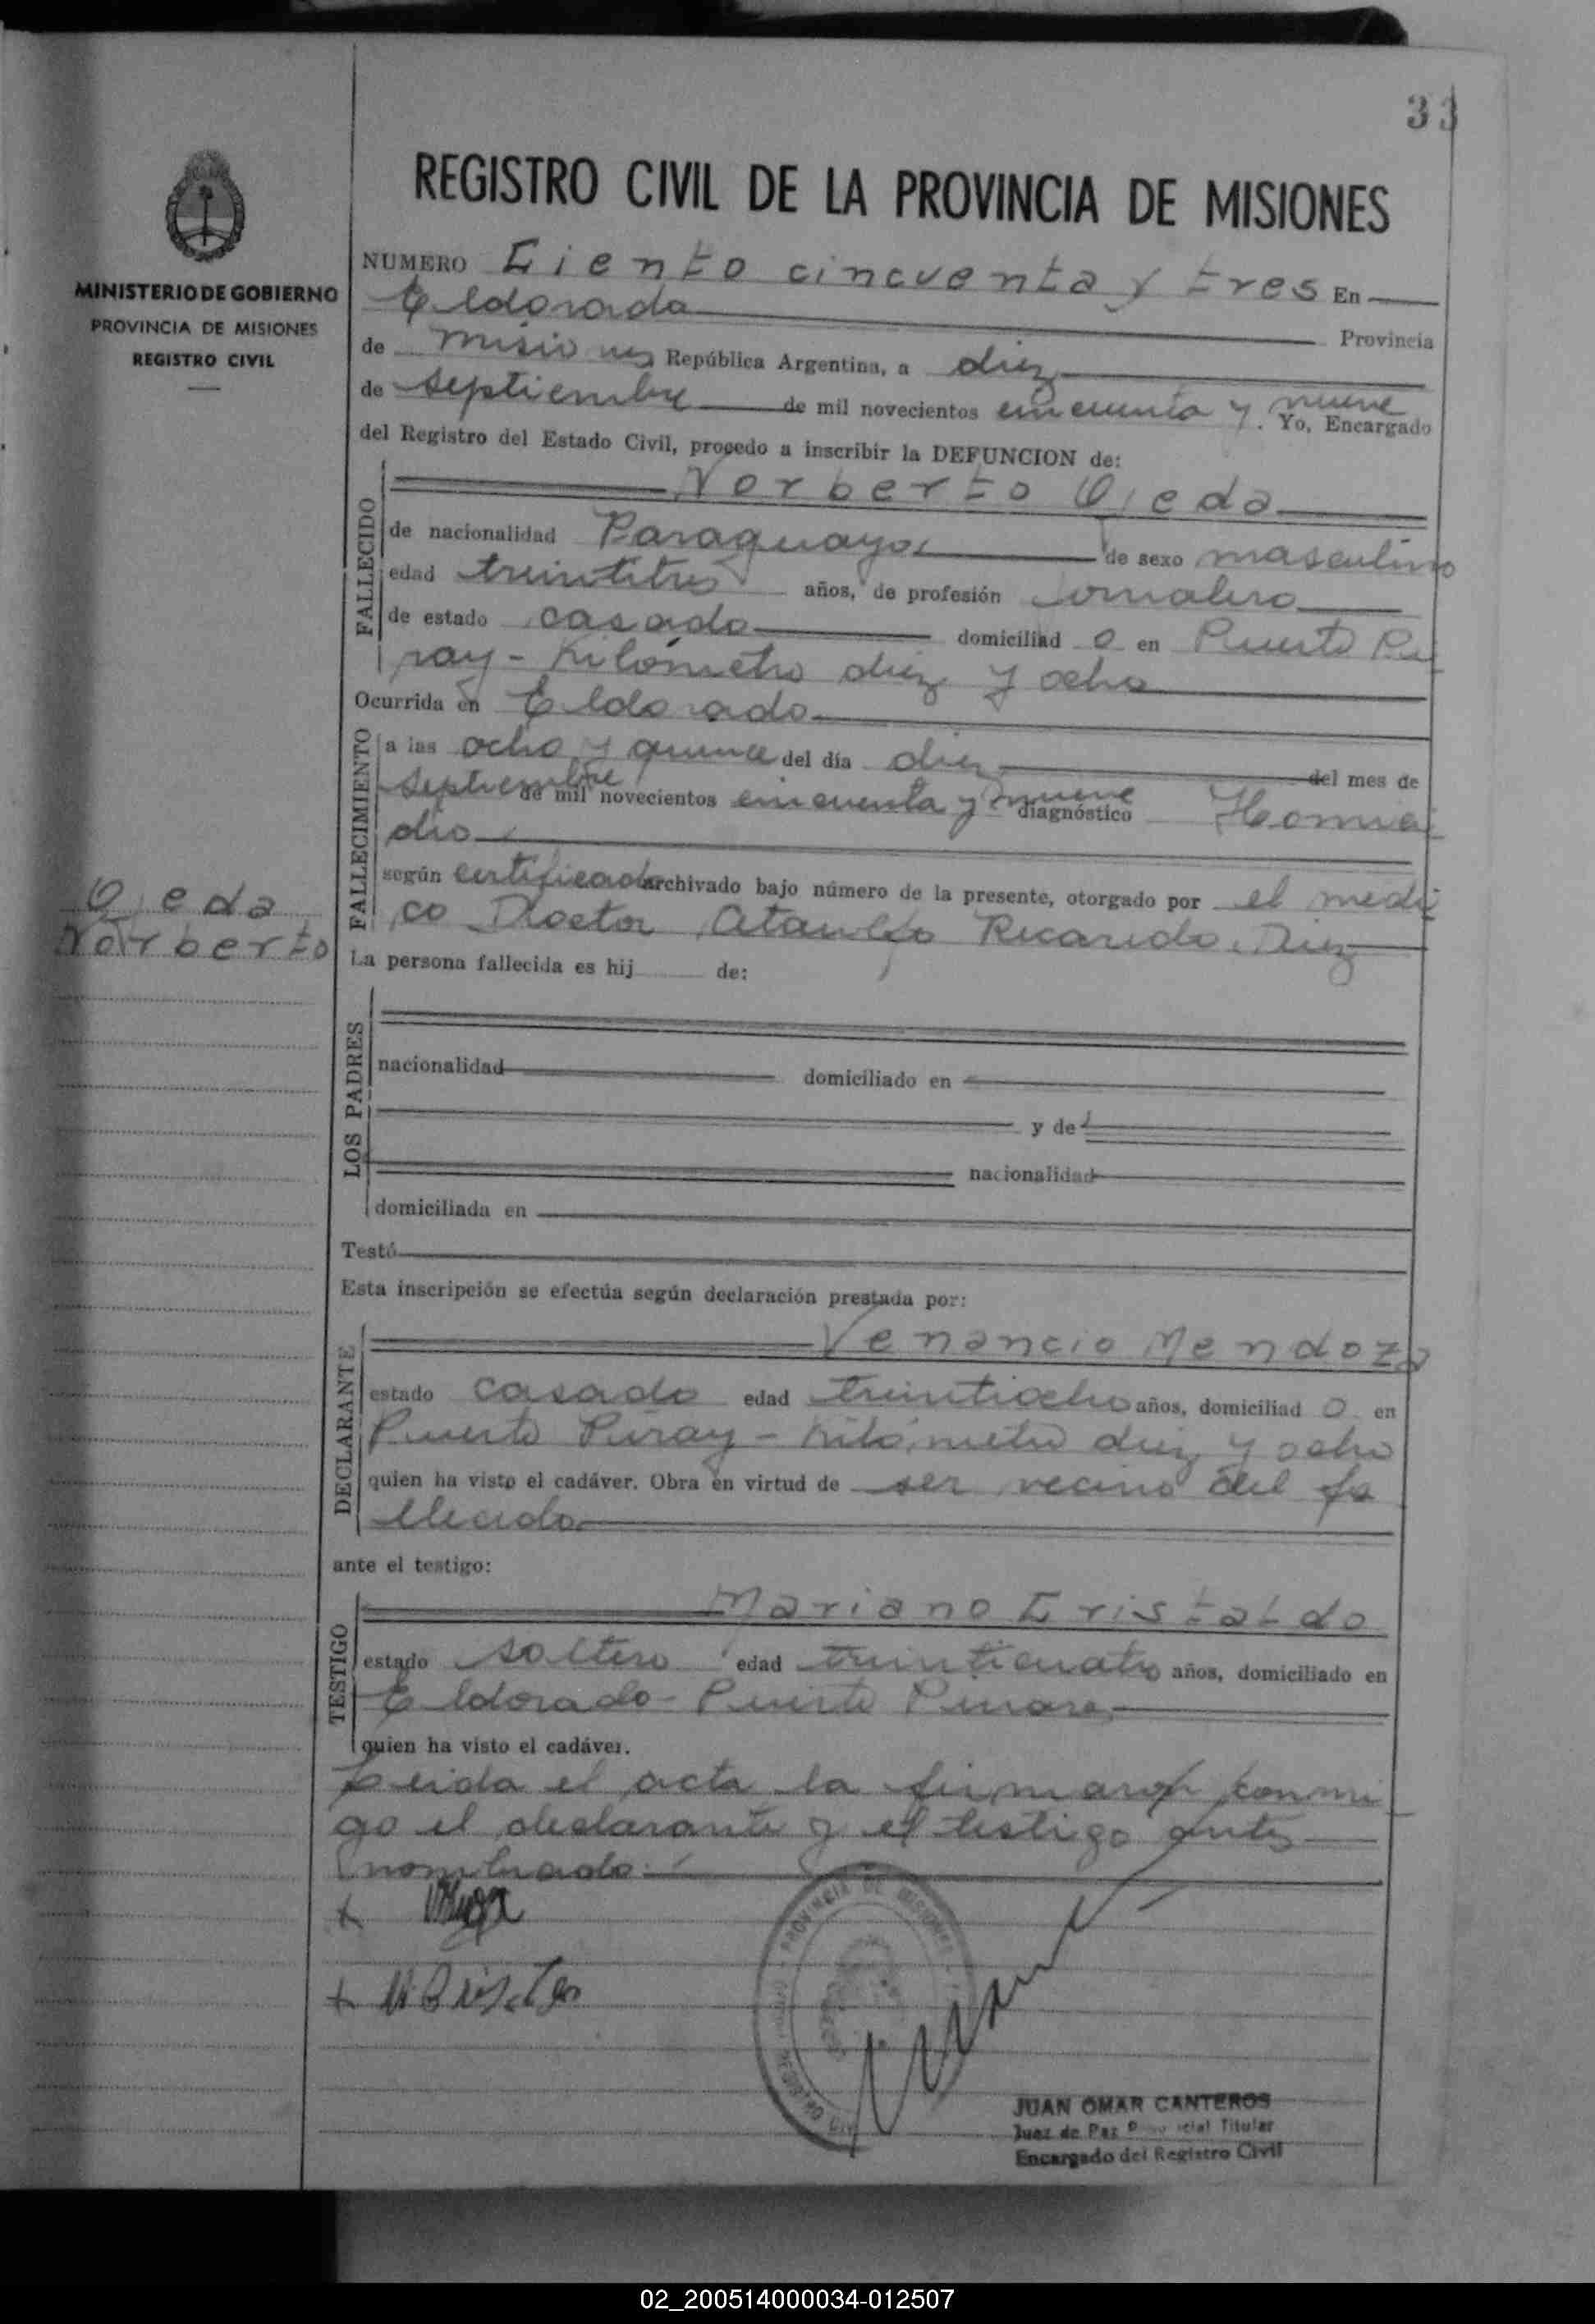 33
REGISTRO CIVIL DE LA PROVINCIA DE MISIONES
MINISTERIO DE GOBIERNO
PROVINCIA DE MISIONES
REGISTRO CIVIL
NUMERO Ciento cincuenta y tres En
Eldorado Provincia
de Misiones República Argentina, a diez
de septiembre de mil novecientos cincuenta y nueve. Yo, Encargado
del Registro del Estado Civil, procedo a inscribir la DEFUNCION de:
FALLECIDO
Norberto Ojeda
de nacionalidad Paraguaya de sexo masculino
edad treintitres años, de profesión Jornalero
de estado casado domiciliad o en Puerto Pi
ray - Kilómetro diez y ocho
Ocurrida en Eldorado
FALLECIMIENTO
a las ocho y quince del día diez del mes de
septiembre de mil novecientos cincuenta y nueve diagnóstico Homici
dio
según certificado archivado bajo número de la presente, otorgado por el medi
co Doctor Ataulfo Ricardo Diez
Ojeda
Norberto
La persona fallecida es hij de:
LOS PADRES
nacionalidad domiciliado en
y de
nacionalidad
domiciliada en
Testó
Esta inscripción se efectúa según declaración prestada por:
DECLARANTE
Venancio Mendoza
estado casado edad treintiocho años, domiciliad o en
Puerto Piray - Kilómetro diez y ocho
quien ha visto el cadáver. Obra en virtud de ser vecino del fa
llecido
ante el testigo:
TESTIGO
Mariano Cristaldo
estado soltero edad treinticuatro años, domiciliado en
Eldorado - Puerto
quien ha visto el cadáver.
Leida el acta la firmaron conmi
go el declarante y el testigo antes
nombrado:
PROVINCIA DE MISIONES
JUAN OMAR CANTEROS
Juez de Paz Titular
Encargado del Registro Civil
02_200514000034-012507